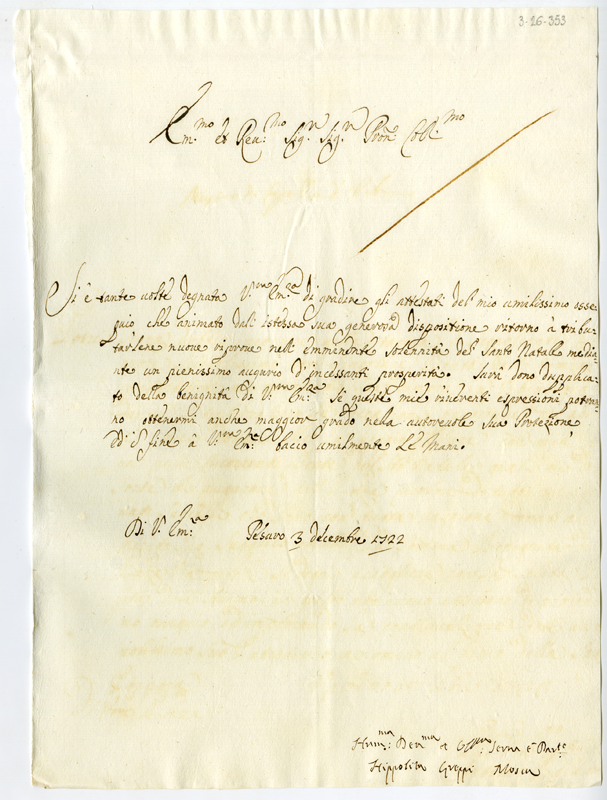 3-26-353
Em.mo et Reu:mo Sig.r Sig.r Pron Coll.mo
Si è tante uolte degnata V.ra Em.za di gradire gli attestati del mio umilissimo osse
quio che animato dall' istessa sua generosa dispositione ritorno à tribu
tarlene nuoue riproue nell' emminente solennità del Santo Natale media
nte un pienissimo augurio d' incessanti prosperità. Sarà dono dupplica
to della benignità di V.ra Em.za se queste mie riuerenti espressioni potran
no ottenermi anche maggior grado nella autoreuole sua Protezione,
ed' in fine à V.ra Em.za bacio umilmente Le Mani.
Di V. Em.za Pesaro 3 decembre 1722
Hum:ma Deu:ma e Serua e Parte
Hippolita Greppi Mosca